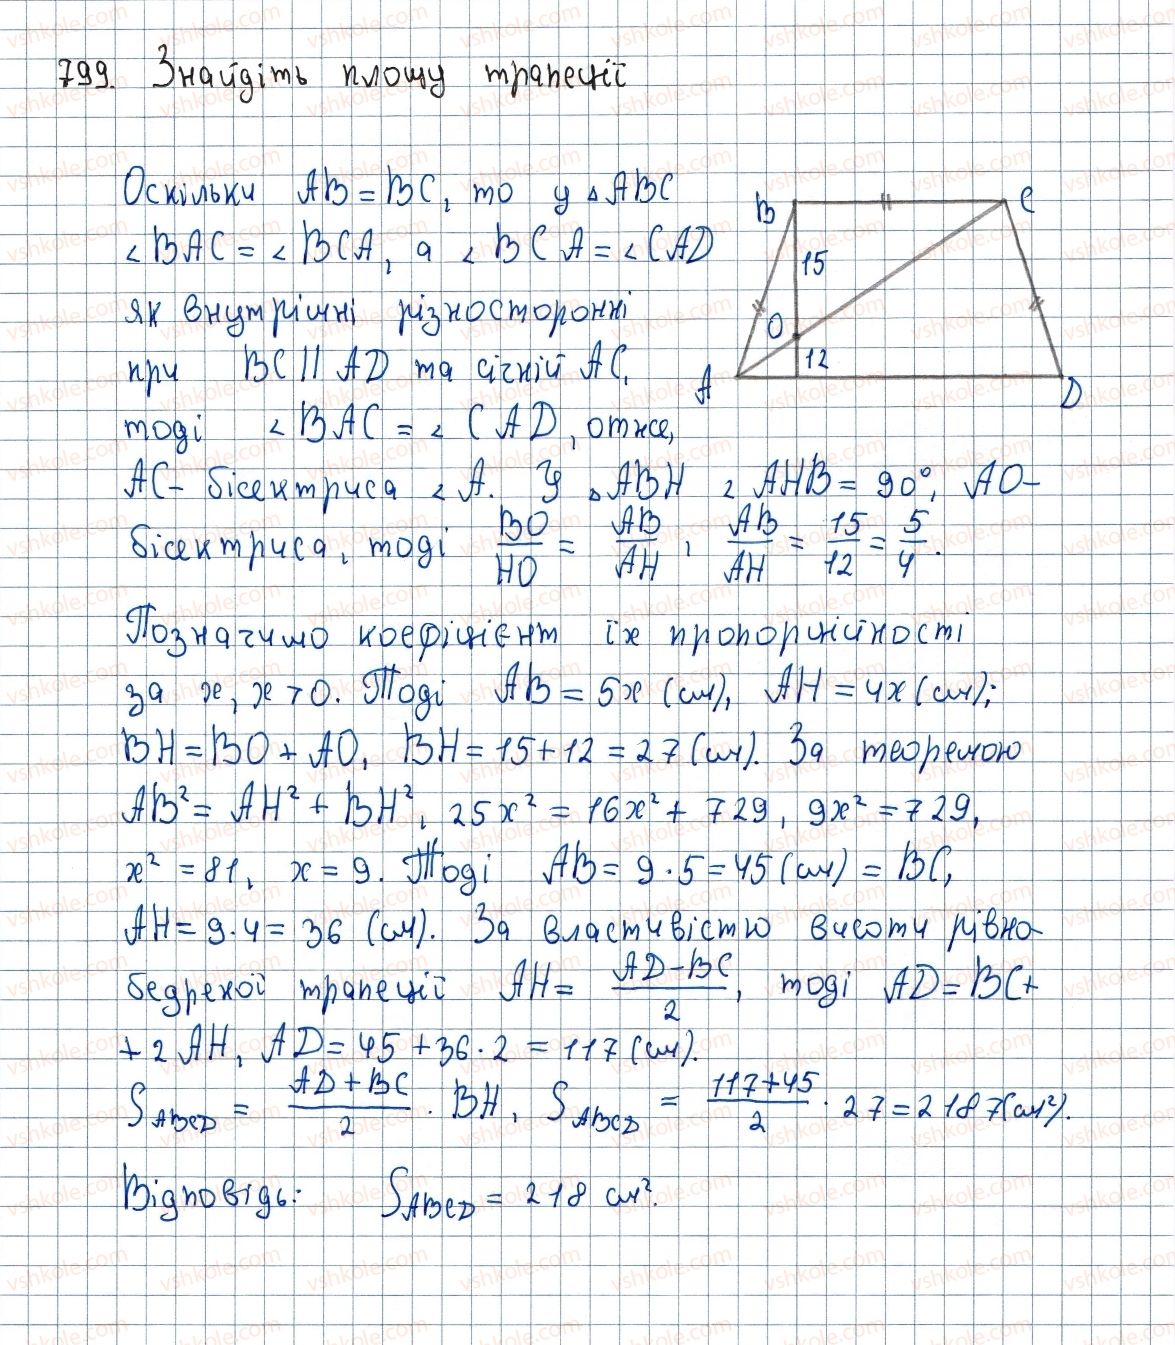 799. Знайдіть площу трапеції
Оскільки AB = BC, то у △ABC
∠BAC = ∠BCA, а ∠BCA = ∠CAD
як внутрішні різносторонні
при BC || AD та січній AC,
тоді ∠BAC = ∠CAD, отже,
AC - бісектриса ∠A. У △ABH ∠AHB = 90°, AO -
бісектриса, тоді BO/HO = AB/AH, AB/AH = 15/12 = 5/4.
Позначимо коефіцієнт їх пропорційності
за x, x > 0. Тоді AB = 5x (см), AH = 4x (см);
BH = BO + AO, BH = 15 + 12 = 27 (см). За теремою
AB² = AH² + BH², 25x² = 16x² + 729, 9x² = 729,
x² = 81, x = 9. Тоді AB = 9 · 5 = 45 (см) = BC,
AH = 9 · 4 = 36 (см). За властивістю висоти рівно-
бедреної трапеції AH = (AD - BC)/2, тоді AD = BC +
+ 2AH, AD = 45 + 36 · 2 = 117 (см).
S ABCD = (AD + BC)/2 · BH, S ABCD = (117 + 45)/2 · 27 = 2187 (см²).
Відповідь: S ABCD = 218 см².
B
C
15
O
12
A
D